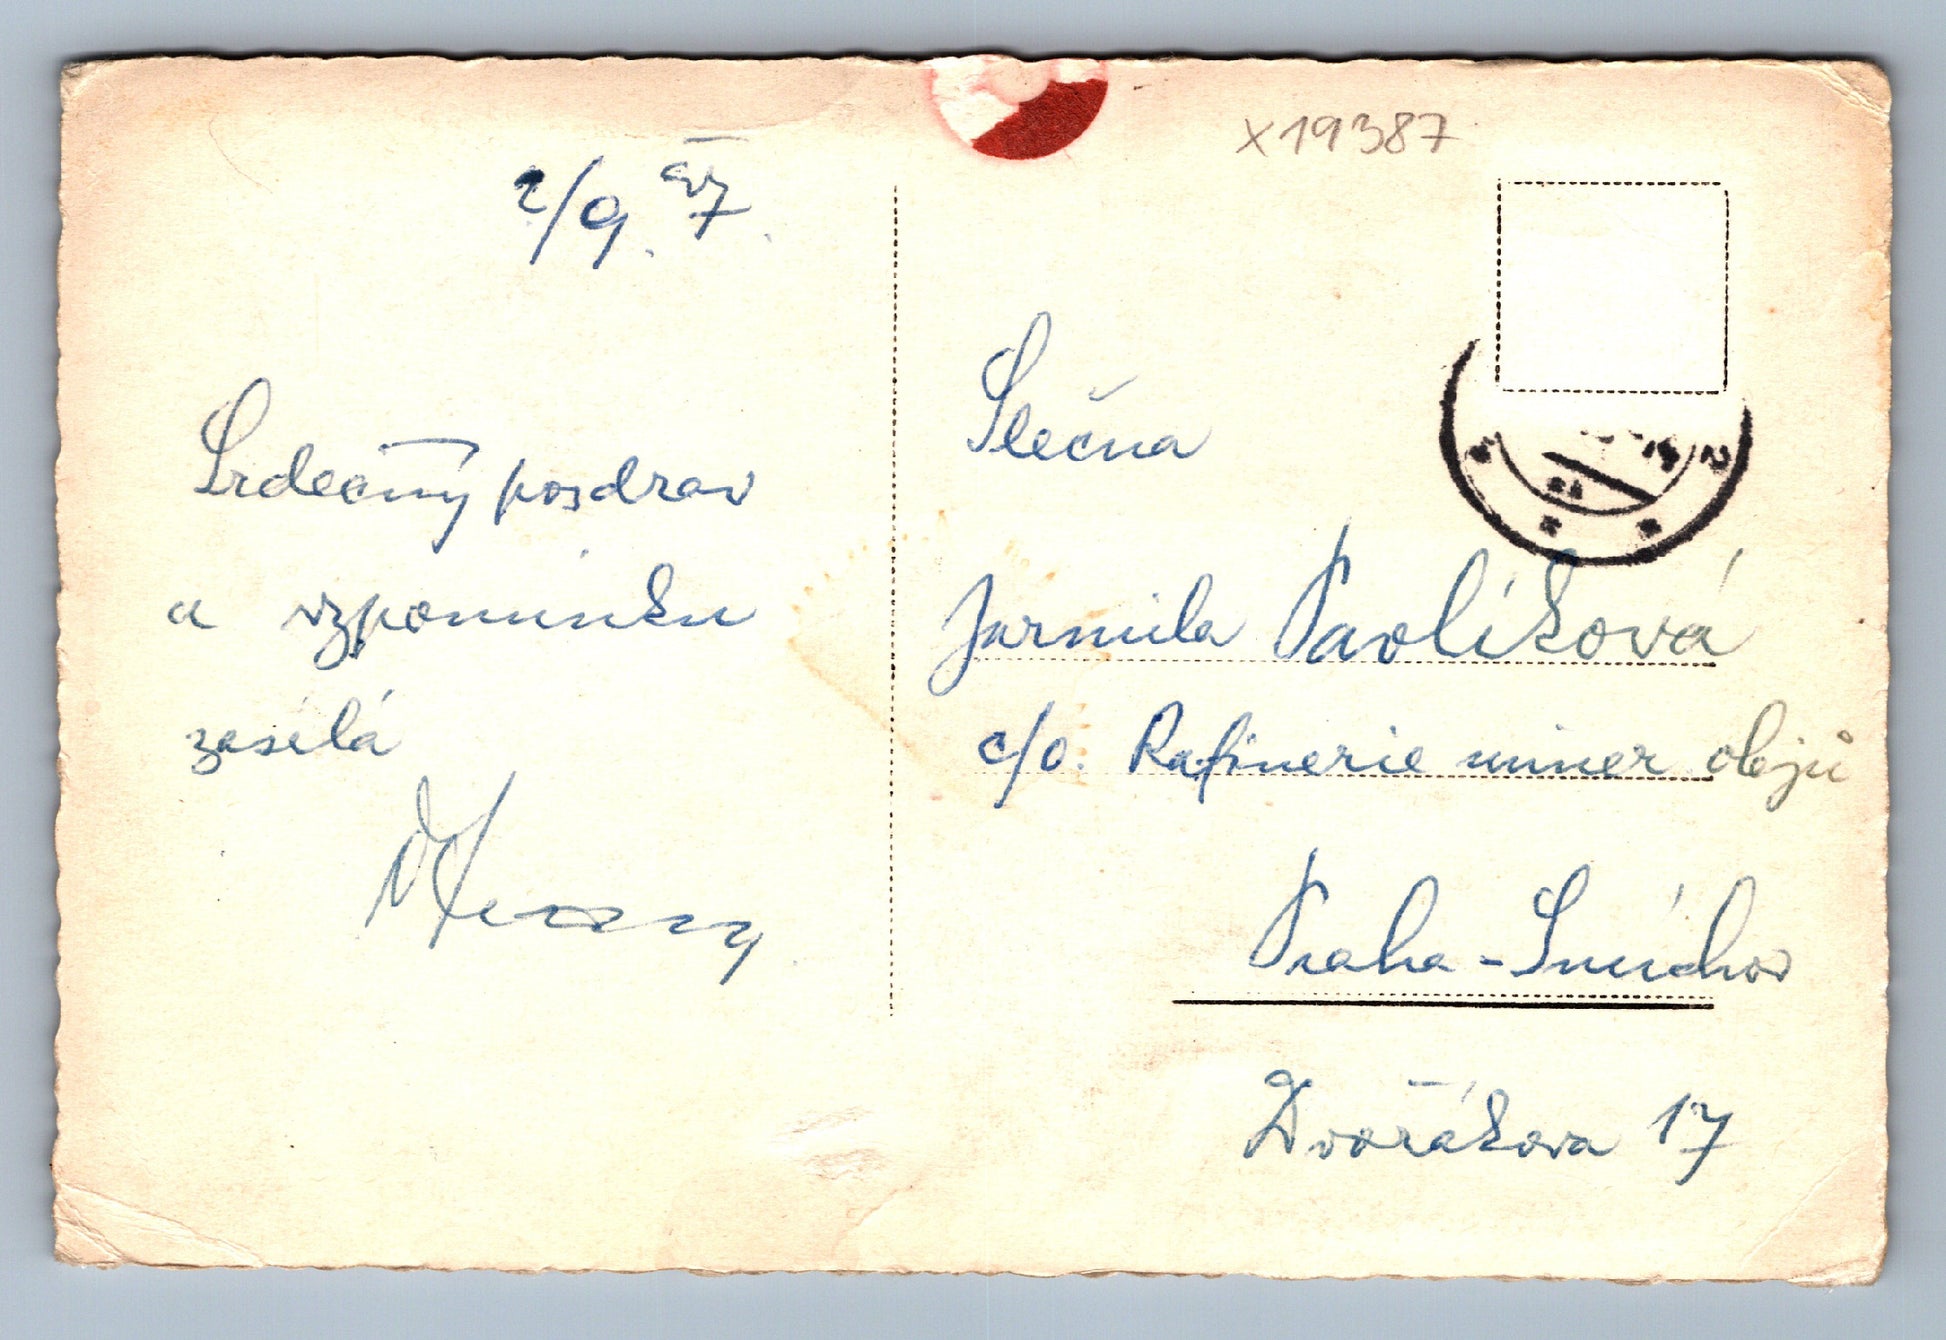 X19387
2/9.
Srdečný pozdrav
a vzpomínku
zasílá
Slečna
Jarmila Pavlíková
c/o. Rafinerie miner olejů
Praha - Smíchov
Dvořákova 17